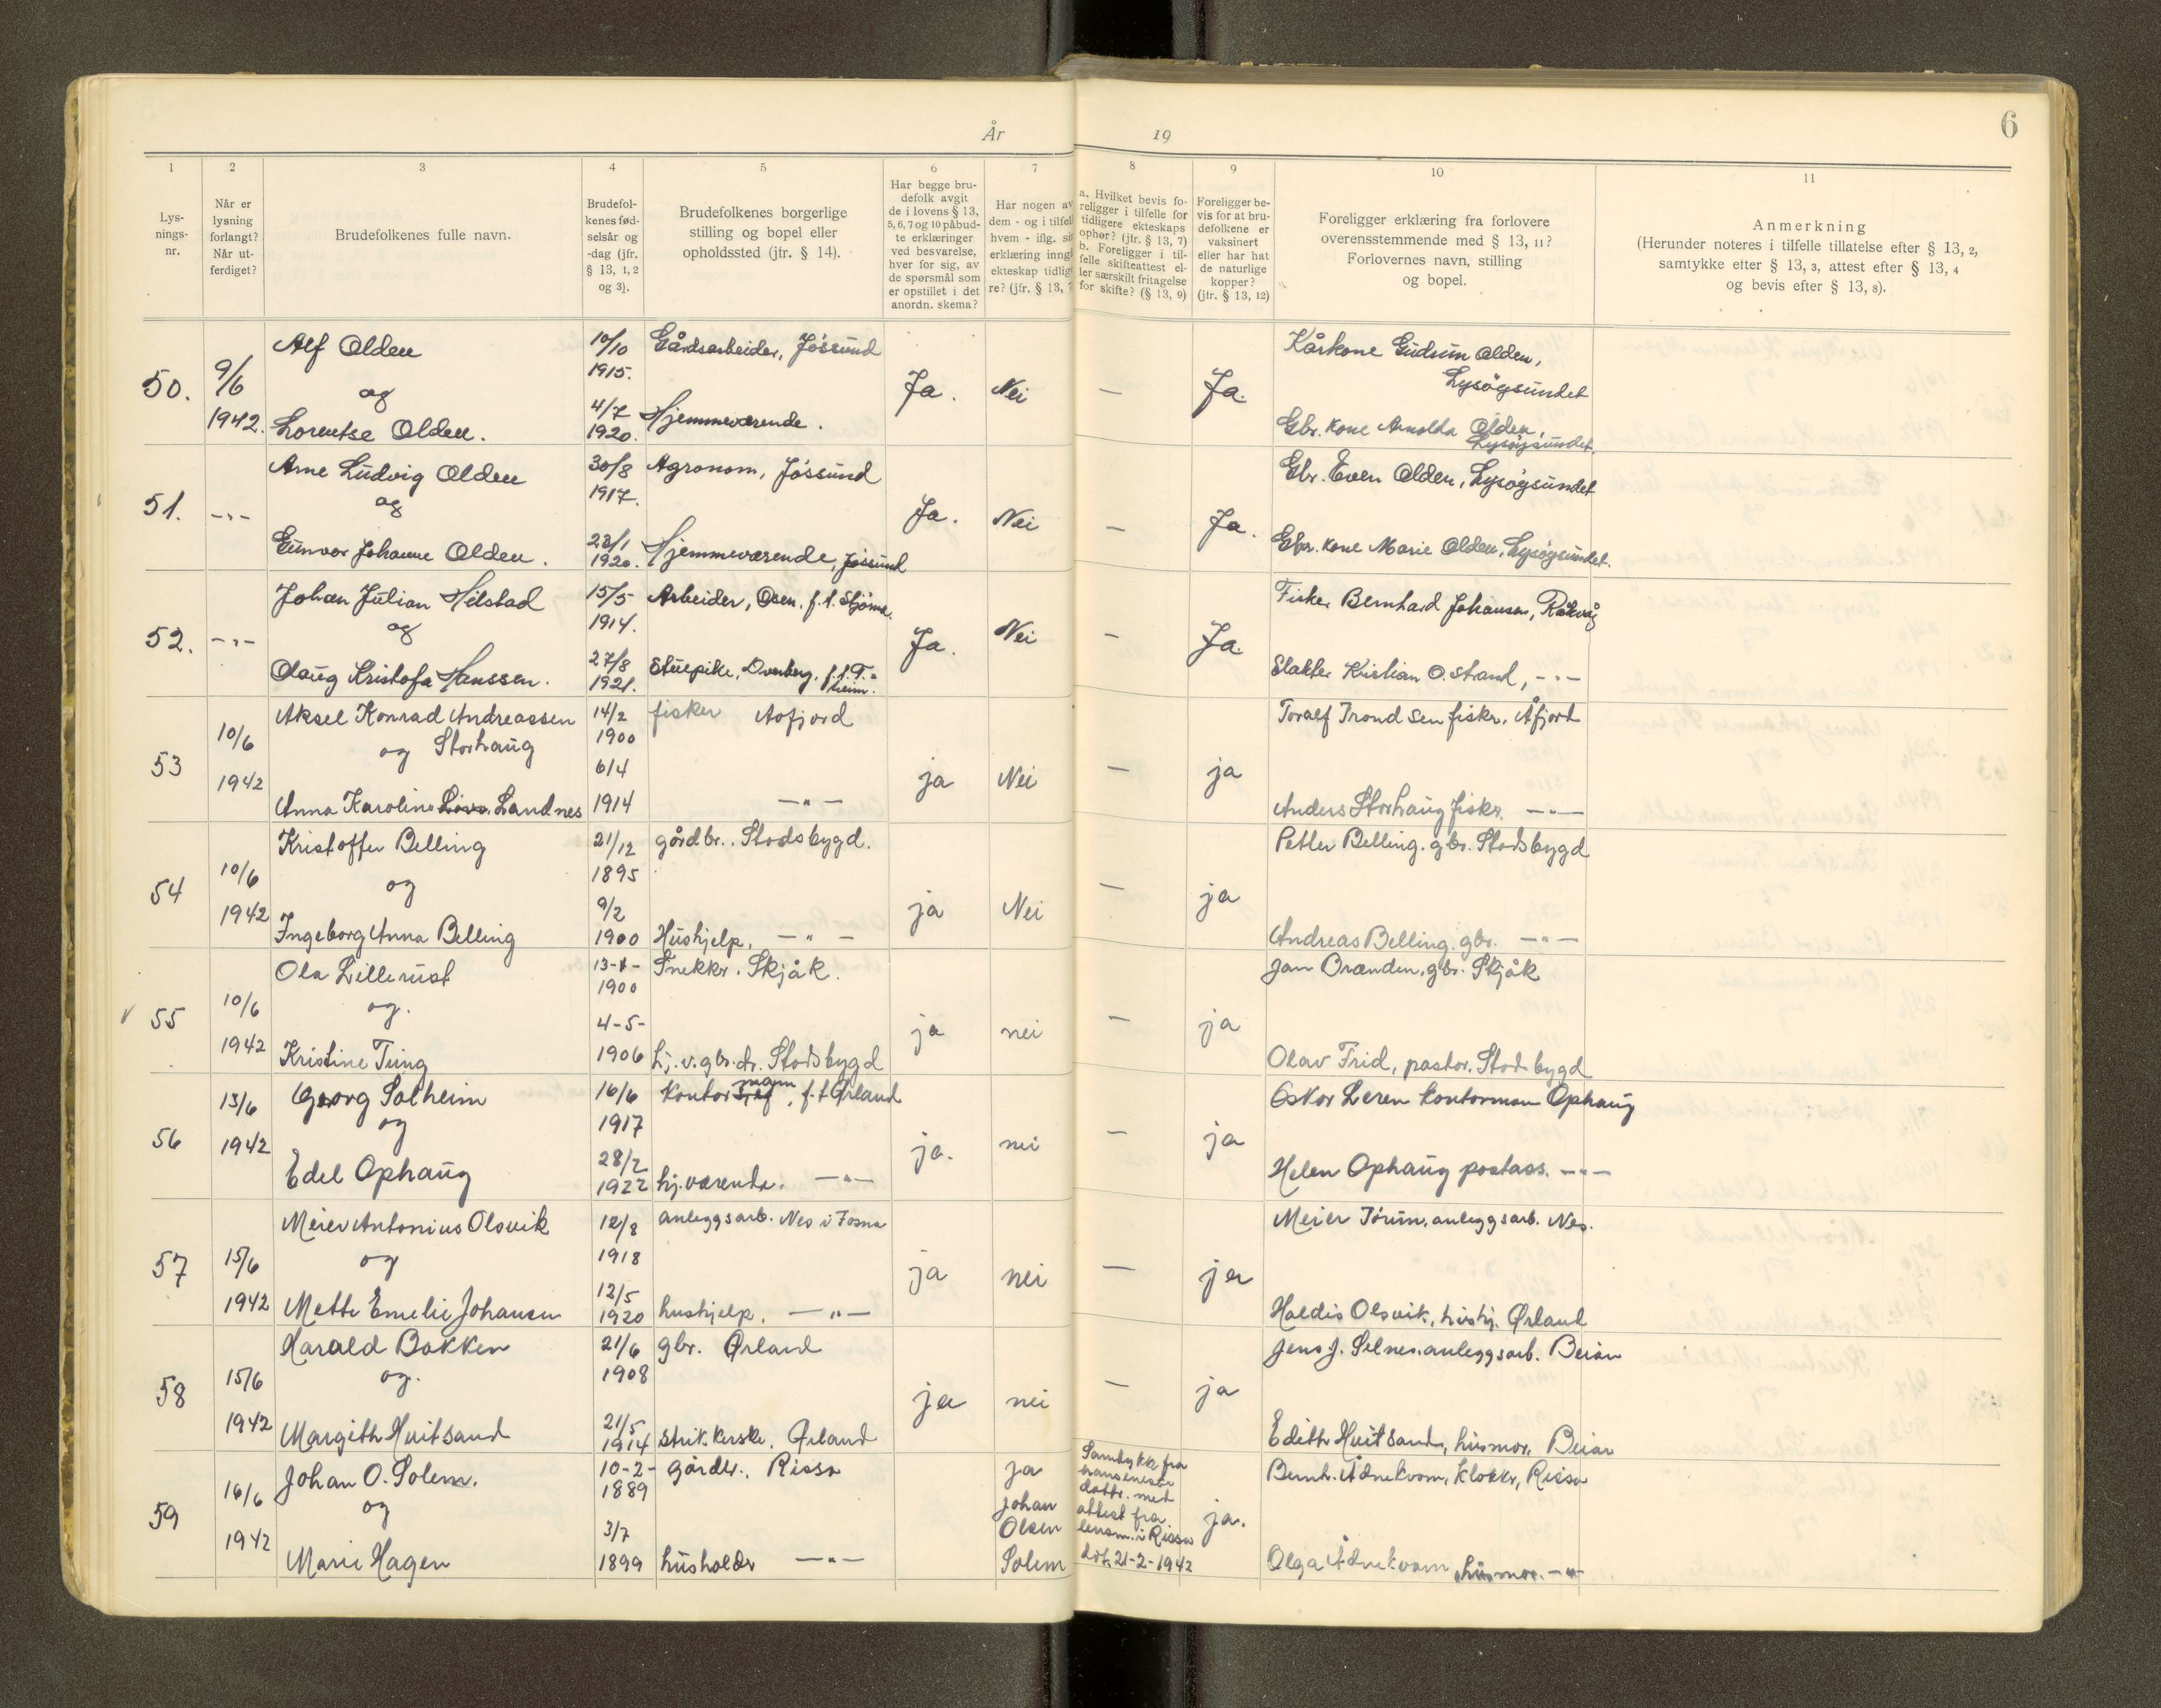 År 19
6
1 2 3 4 5 6 7 8 9 10 11
Lys-
nings-
nr.
Når er
lysning
forlangt?
Når ut-
ferdiget?
Brudefolkenes fulle navn.
Brudefol-
kenes fød-
selsår og
-dag (jfr.
§ 13, 1, 2
og 3).
Brudefolkenes borgerlige
stilling og bopel eller
opholdssted (jfr. § 14).
Har begge bru-
defolk avgit
de i lovens § 13,
5, 6, 7 og 10 påbud-
te erklæringer
ved besvarelse,
hver for sig, av
de spørsmål som
er opstillet i det
anordn. skema?
Har nogen av
dem - og i tilfel
hvem - iflg. si
erklæring inng
ekteskap tidlig
re? (jfr. § 13, 7
a. Hvilket bevis fo-
religger i tilfelle for
tidligere ekteskaps
ophør? (jfr. § 13, 7)
b. Foreligger i til-
felle skifteattest el-
ler særskilt fritagelse
for skifte? (§ 13, 9)
Foreligger be-
vis for at bru-
defolkene er
vaksinert
eller har hat
de naturlige
kopper?
(jfr. § 13, 12)
Foreligger erklæring fra forlovere
overensstemmende med § 13, 11?
Forlovernes navn, stilling
og bopel.
Anmerkning
(Herunder noteres i tilfelle tillatelse efter § 13, 2,
samtykke efter § 13, 3, attest efter § 13, 4
og bevis efter § 13, 8).
50. 9/6 1942.
Alf Olden 10/10 1915. Gårdsarbeider, Jössund
og
Ja. Nei — Ja.
Kårkone Gudrun Olden,
Lysøysundet
Lorentse Olden. 4/7 1920. Hjemmeværende.
Gbr. kone Arnolda Olden,
Lysøysundet.
51. -"-
Arne Ludvig Olden 30/8 1917. Agronom, Jössund
og
Ja. Nei — Ja.
Gbr. Even Olden, Lysøysundet
Gunvor Johanne Olden. 23/1 1920. Hjemmeværende, Jössund
Gbr. kone Marie Olden, Lysøysundet.
52. -"-
Johan Julian Hilstad 15/5 1914. Arbeider, Osen, f. t.
og
Ja. Nei — Ja.
Fisker Bernhard Johansen, Råkvåg
Olaug Kristofa Hanssen. 27/8 1921. Stuepike, f. t. T.-
heim.
Slakter Kristian O. Strand, -"-
53 10/6 1942
Aksel Konrad Andreassen 14/2 1900 fisker Aafjord
og Storhaug
ja Nei — ja
Toralf Trondsen fisker. Åfjord
Anna Karoline Landnes 6/4 1914 —"—
Anders Storhaug fisker. —"—
54 10/6 1942
Kristoffer Belling 21/12 1895 gårdbr. Stadsbygd.
og
ja Nei — ja
Petter Belling. gbr. Stadsbygd
Ingeborg Anna Belling 9/2 1900 Hushjelp. —"—
Andreas Belling. gbr. —"—
55 10/6 1942
Ola Lillerust 1900 Snekker. Skjåk.
og.
ja nei — ja
Jan Oranden, gbr. Skjåk
Kristine Tung 4-5-1906 hj. v. gbr. dr. Stadsbygd
Olav Frid, pastor. Stadsbygd
56 13/6 1942
Georg Solheim 16/6 1917 kontormann, f. t. Ørland
og
ja. nei — ja
Oskar Leren kontorman Ophaug
Edel Ophaug 28/2 1922 hj. værende. —"—
Helen Ophaug postass. —"—
57 15/6 1942
Meier Antonius Olsvik 12/8 1918 anleggsarb. Nes i Fosna
og
ja nei — ja
Meier Jörum, anleggsarb. Nes.
Mette Emelie Johansen 12/5 1920 hushjelp. —"—
Haldis Olsvik, hushj. Ørland
58 15/6 1942
Harald Bakken 21/6 1908 gbr. Ørland
og.
ja nei — ja
Jens J. Selnes. anleggsarb. Beian
Margith Hvitsand 21/5 1914 strikkerske. Ørland
Edith Hvitsand, husmor. Beian
59 16/6 1942
Johan O. Solem. 10-2-1889 gårdbr., Rissa
og
ja
Johan
Olsen
Solem
Samtykke fra
hans eneste
datter. met
attest fra
lensm. i Rissa
dat. 21-2-1942
ja.
Bernh. Ådnekvam, klokker, Rissa
Marie Hagen 3/7 1899 husholder —"—
Olga Ådnekvam, husmor. —"—